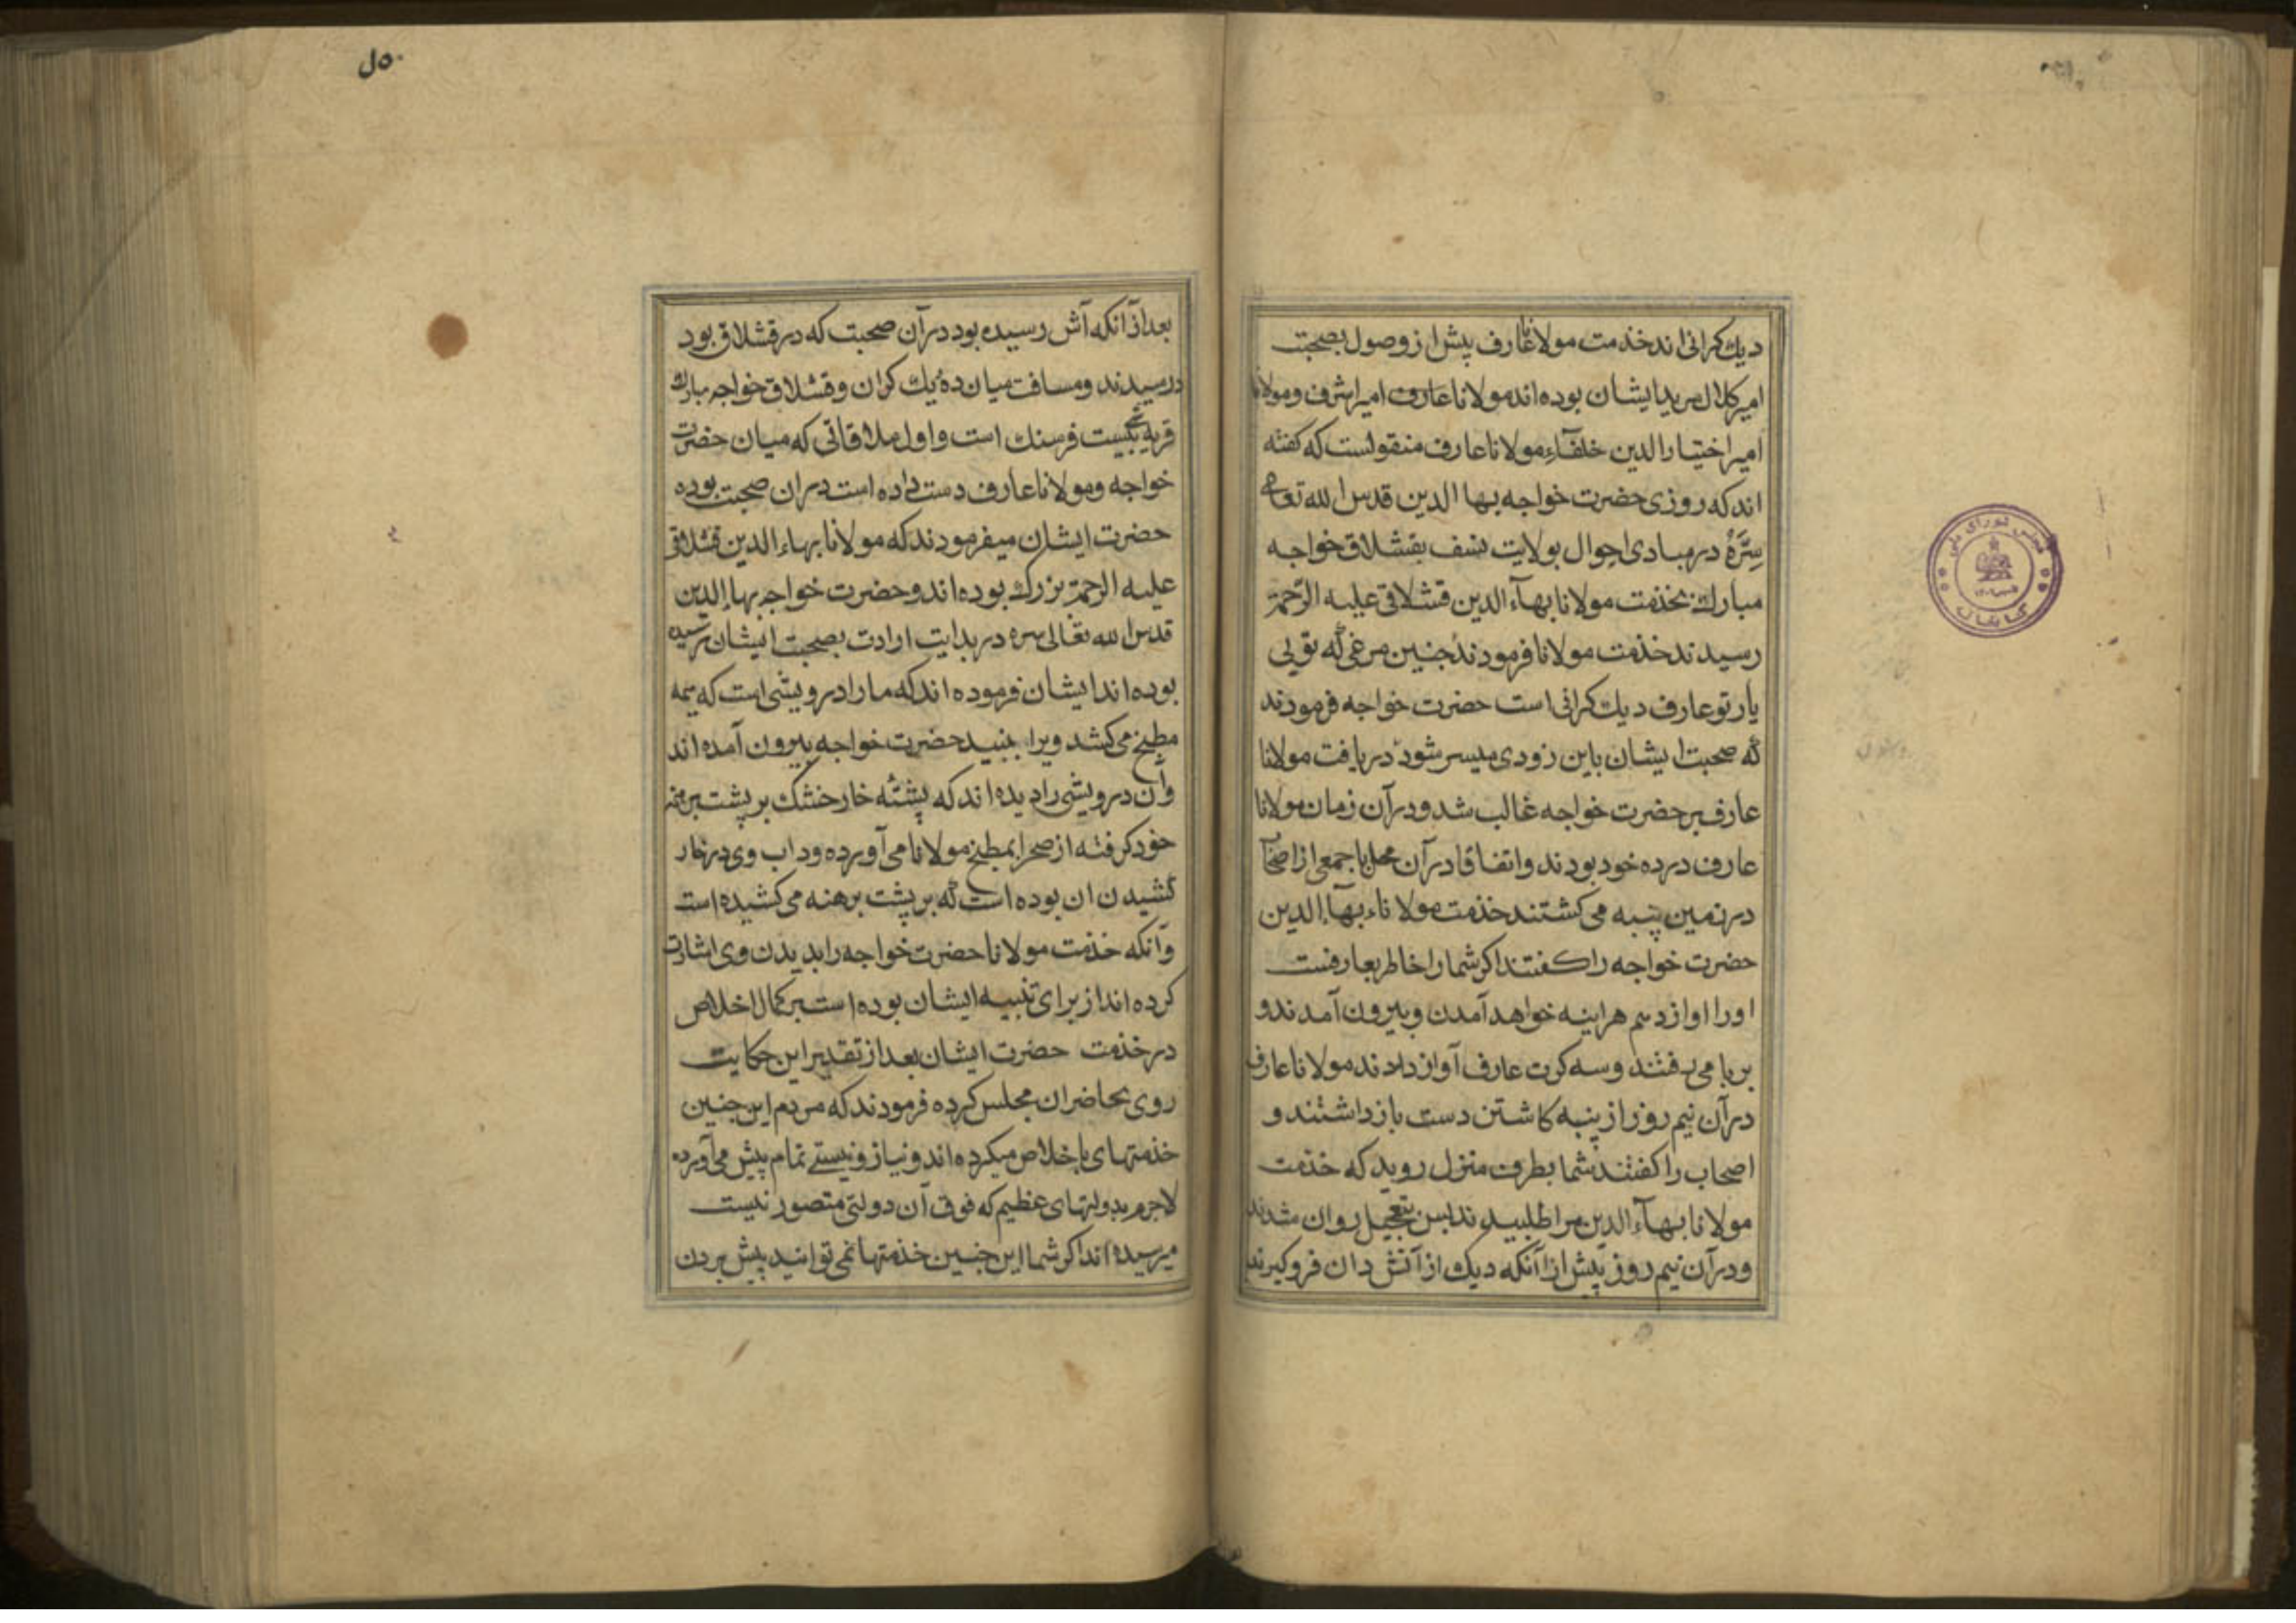 دیك کرانی اند خذمت مولانا عارف پیش از وصول بصحبت
امیر کلال مرید ایشان بوده اند مولانا عارف امیر اشرف و مولانا
امیر اختیار الدین خلفآءِ مولانا عارف منقولست که کفته
اند که روزی حضرت خواجه بها الدین قدس الله تعالی
سِرَّهُ در مبادی احوال بولایت نسف بقشلاق خواجه
مبارك بخذمت مولانا بهآء الدین قشلاقی علیه الرّحمة
رسیدند خذمت مولانا فرمودند جنین مرغی که تویی
یار تو عارف دیك کرانی است حضرت خواجه فرمودند
که صحبت ایشان باین زودی میسر شود دریافت مولانا
عارف بر حضرت خواجه غالب شد ودرآن زمان مولانا
عارف در ده خود بودند واتفاقا درآن محل با جمعی از اصحآ
در زمین پنبه می کشتند خذمت مولاناء بهآ الدین
حضرت خواجه را کفتند اکر شما را خاطر بعارفست
اورا اواز دهم هراینه خواهد آمدن وبیرون آمدند و
بر بامی رفتند وسه کرت عارف آواز دادند مولانا عارف
درآن نیم روز از پنبه کاشتن دست بازداشتند و
اصحاب را کفتند شما بطرف منزل روید که خذمت
مولانا بهآء الدین مرا طلبیدند بس بتعجیل روان شدند
ودرآن نیم روز پیش از آنکه دیك از آتش دان فروکیرند
۰۵ل
بعد از آنکه آش رسیده بود درآن صحبت که در قشلاق بود
در رسیدند ومسافت میان ده یك کران وقشلاق خواجه مبارك
قریه بیست فرسنك است واول ملاقاتی که میان حضرت
خواجه ومولانا عارف دست داده است دران صحبت بوده
حضرت ایشان میفرمودند که مولانا بهاء الدین قشلاقی
علیه الرحمة بزرك بوده اند وحضرت خواجه بها الدین
قدس الله تعالی سره در بدایت ارادت بصحبت ایشان رسیده
بوده اند ایشان فرموده اند که ما را درویشی است که همه
مطبخ می کشد ویرا ببنید حضرت خواجه بیرون آمده اند
وآن درویش را دیده اند که پشته خار خشك بر پشت برهنه
خود کرفته از صحرا بمطبخ مولانا می آورده وداب وی در خار
کشیدن ان بوده است که بر پشت برهنه می کشیده است
وآنکه خذمت مولانا حضرت خواجه را بدیدن وی اشارت
کرده اند از برای تنبیه ایشان بوده است بر کمال اخلاص
در خذمت حضرت ایشان بعد از تقدیر این حکایت
روی بحاضران مجلس کرده فرمودند که مردم این جنین
خذمتهای با خلاص میکرده اند ونیاز ونیستی تمام پیش می آورده
لاجرم بدولتهای عظیم که فوق آن دولتی متصور نیست
میرسیده اند اکر شما این جنین خذمتها نمی توانید پیش بردن